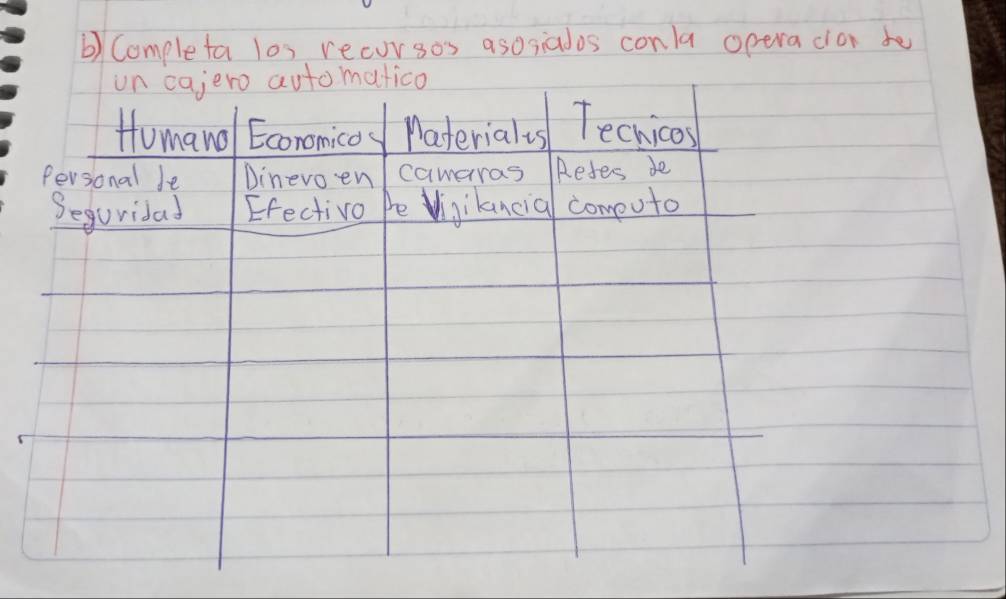 b) Completa los recursos asosiados con la operacion de
un cajero automatico
Humano Economicos Materiales Tecnicos
Personal de Dinero en camaras Redes de
Seguridad Efectivo De Vijilancia computo